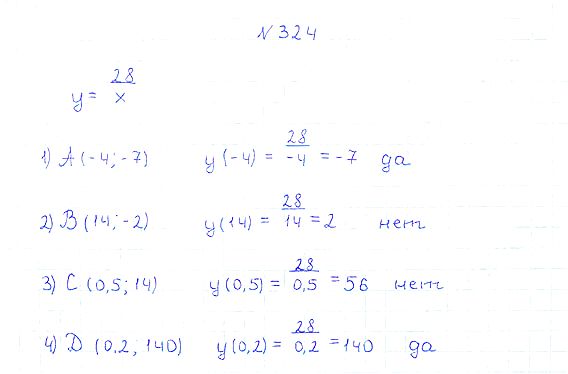 № 324
y = 28/x
1) A (-4; -7) y(-4) = 28/-4 = -7 да
2) B (14; -2) y(14) = 28/14 = 2 нет
3) C (0,5; 14) y(0,5) = 28/0,5 = 56 нет
4) D (0,2; 140) y(0,2) = 28/0,2 = 140 да